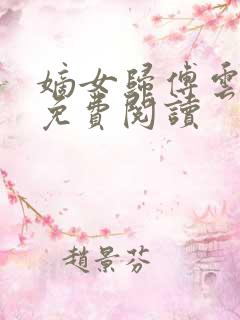 嫡女歸傅雲
免費閱讀
趙景芬